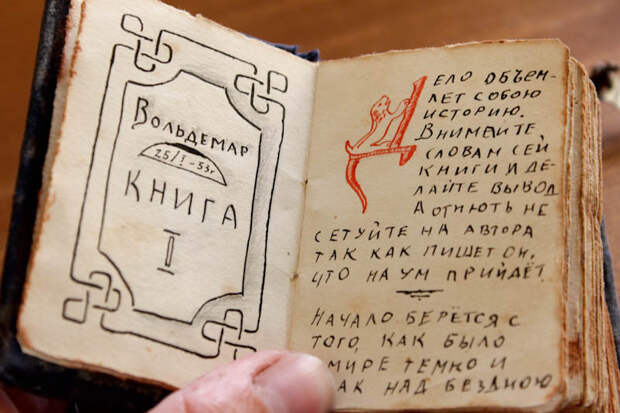 ВОЛЬДЕМАР
25/I-53г
КНИГА
II
ДЕЛО ОБЪЕМ-
ЛЕТ СОБОЮ
ИСТОРИЮ.
ВНИМЕЙТЕ
СЛОВАМ СЕЙ
КНИГИ И ДЕ-
ЛАЙТЕ ВЫВОД
А ОТНЮТЬ НЕ
СЕТУЙТЕ НА АВТОРА
ТАК КАК ПИШЕТ ОН,
ЧТО НА УМ ПРИЙДЁТ.
НАЧАЛО БЕРЁТСЯ С
ТОГО, КАК БЫЛО
МИРЕ ТЕМНО И
АК НАД БЕЗДНОЮ